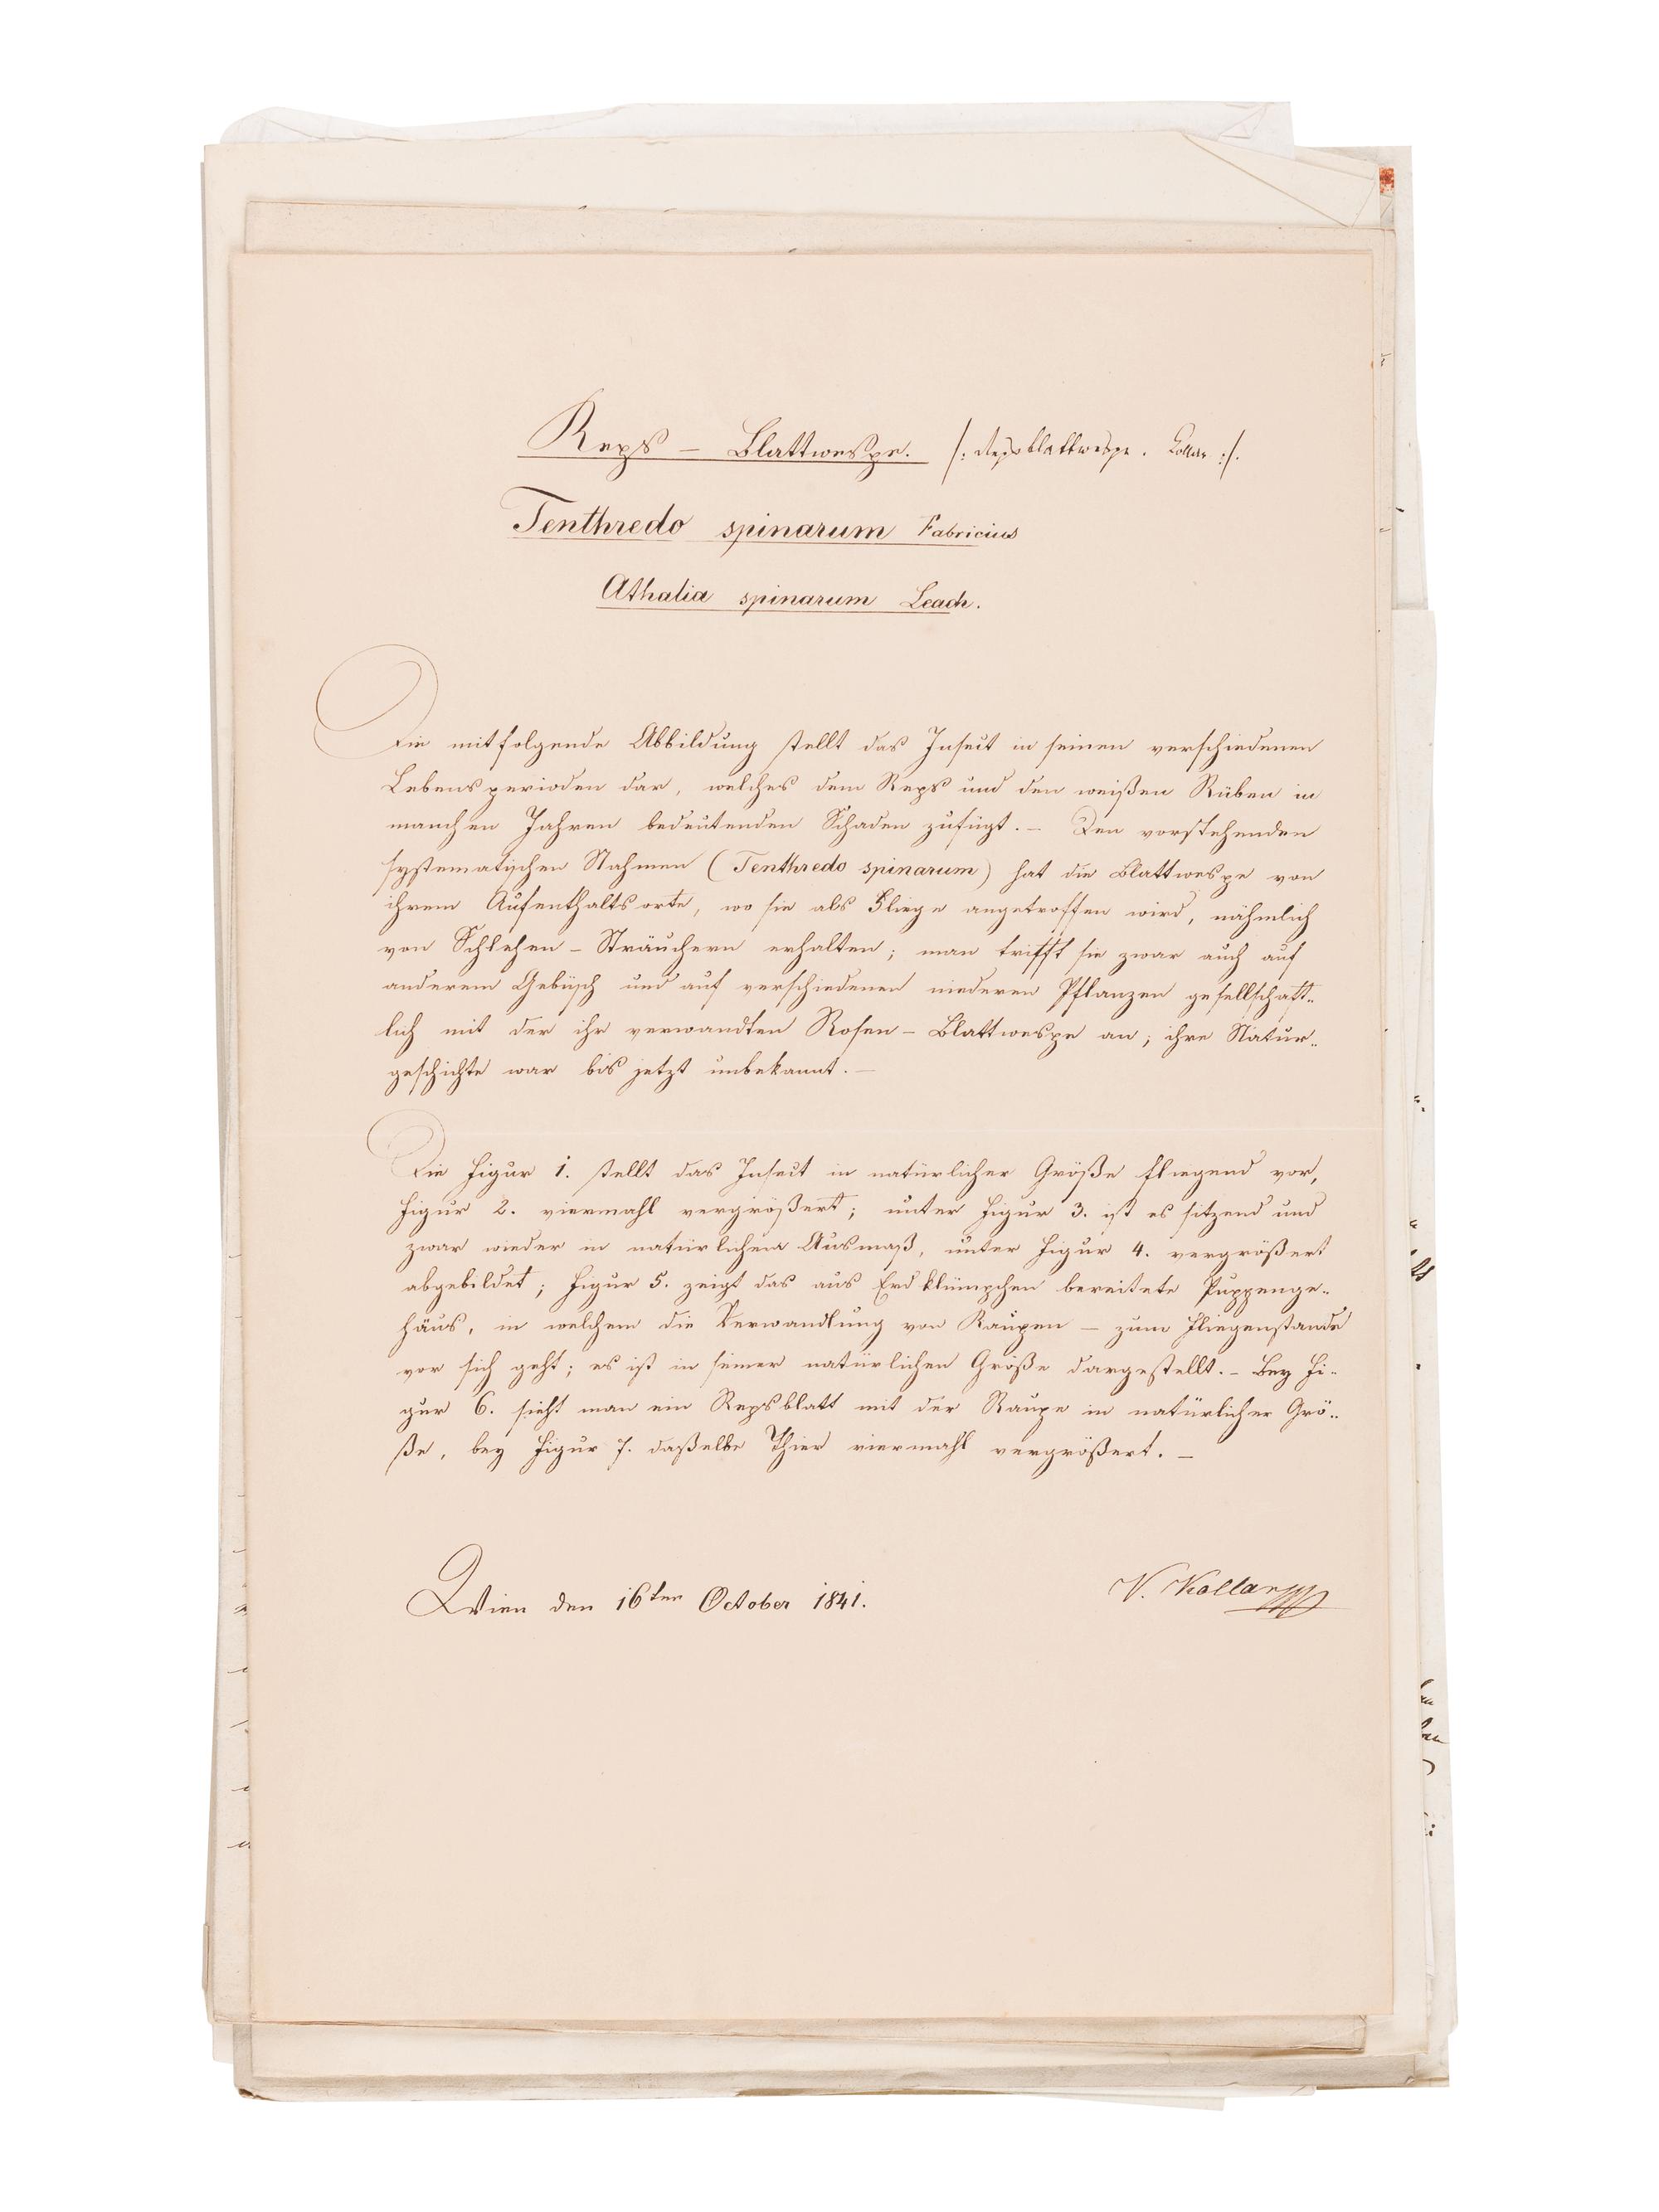 Reps – Blattwespe. /: Repsblattwespe. Kollar :/.
Tenthredo spinarum Fabricius
Athalia spinarum Leach.
Die mitfolgende Abbildung stellt das Insect in seinen verschiedenen
Lebensperioden dar, welches dem Reps und den weißen Rüben in
manchen Jahren bedeutenden Schaden zufügt. – Den vorstehenden
systematischen Nahmen (Tenthredo spinarum) hat die Blattwespe von
ihrem Aufenthaltsorte, wo sie als Fliege angetroffen wird, nähmlich
von Schlehen – Sträuchern erhalten; man trifft sie zwar auch auf
anderem Gebüsch und auf verschiedenen niederen Pflanzen gesellschaft..
lich mit der ihr verwandten Rosen – Blattwespe an; ihre Natur..
geschichte war bis jetzt unbekannt. –
Die Figur 1. stellt das Insect in natürlicher Größe fliegend vor,
Figur 2. viermahl vergrößert; unter Figur 3. ist es sitzend und
zwar wieder in natürlichem Ausmaß, unter Figur 4. vergrößert
abgebildet; Figur 5. zeigt das aus Erdklümpchen bereitete Puppenge..
häus, in welchem die Verwandlung von Raupen – zum Fliegenstande
vor sich geht; es ist in seiner natürlichen Größe dargestellt. – Bey Fi..
gur 6. sieht man ein Repsblatt mit der Raupe in natürlicher Grö..
ße, bey Figur 7. daßelbe Thier viermahl vergrößert. –
Wien den 16ten October 1841.
V. Kollar